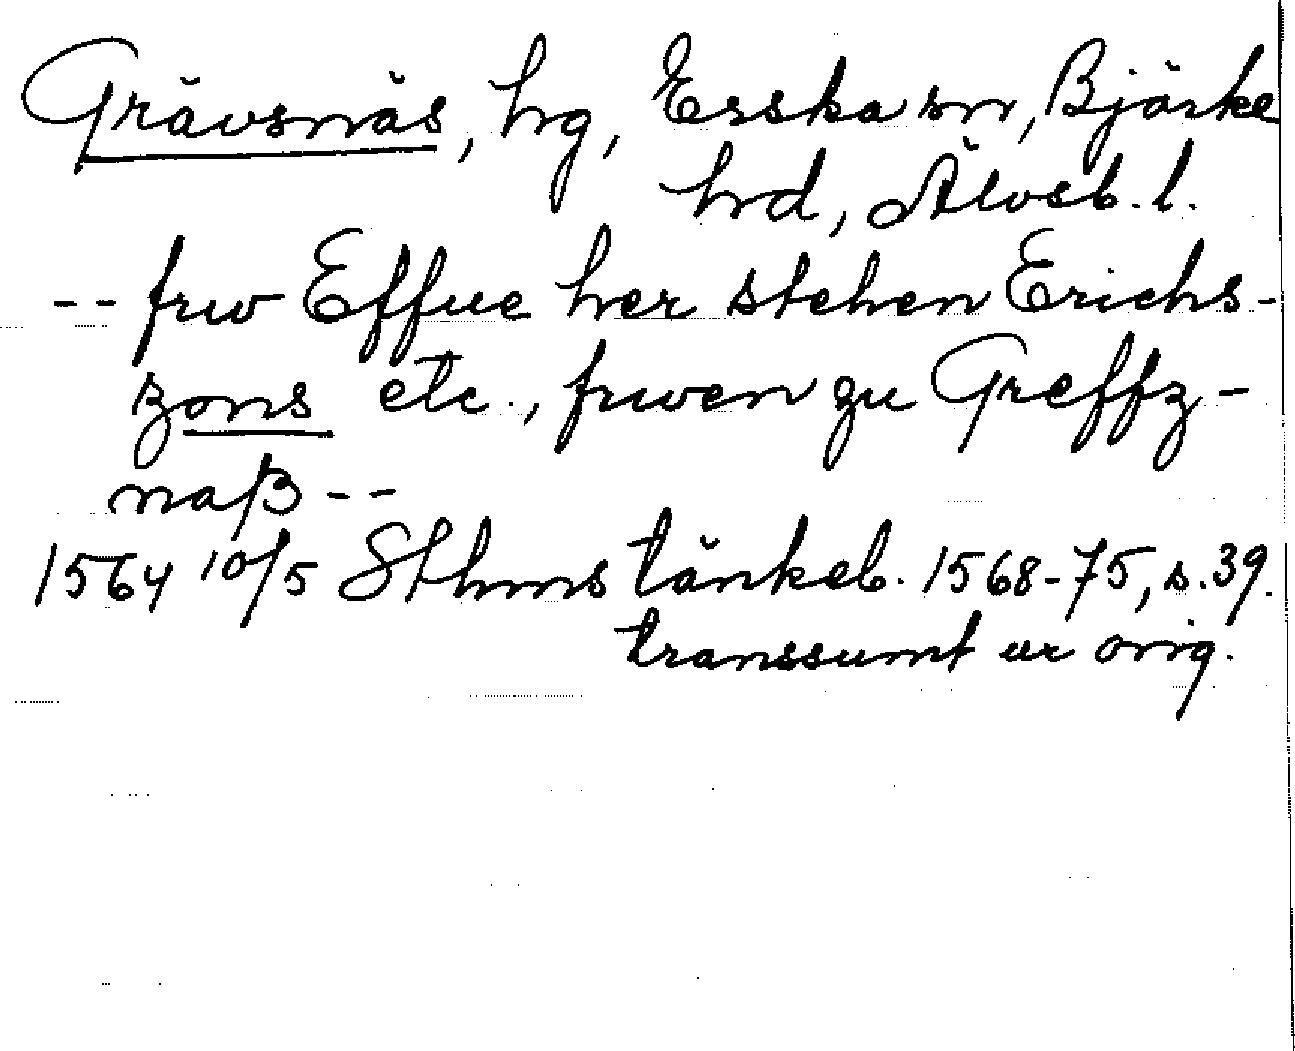 Grävsnäs, hg, Erska sn, Bjärke
hrd, Älvsb. l.
-- frw Effue her stehen Erichs-
zons etc., frwen zu Greffz-
naß --
1564 10/5 Sthms tänkeb. 1568-75, s. 39.
transsumt ur orig.